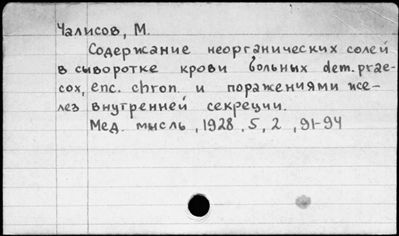 Чалисов, М.
Содержание неорганических солей
в сыворотке крови больных dem. prae-
cox, enc. chron. и поражениями же-
лез внутренней секреции.
Мед. мысль, 1928, 5, 2, 91-94